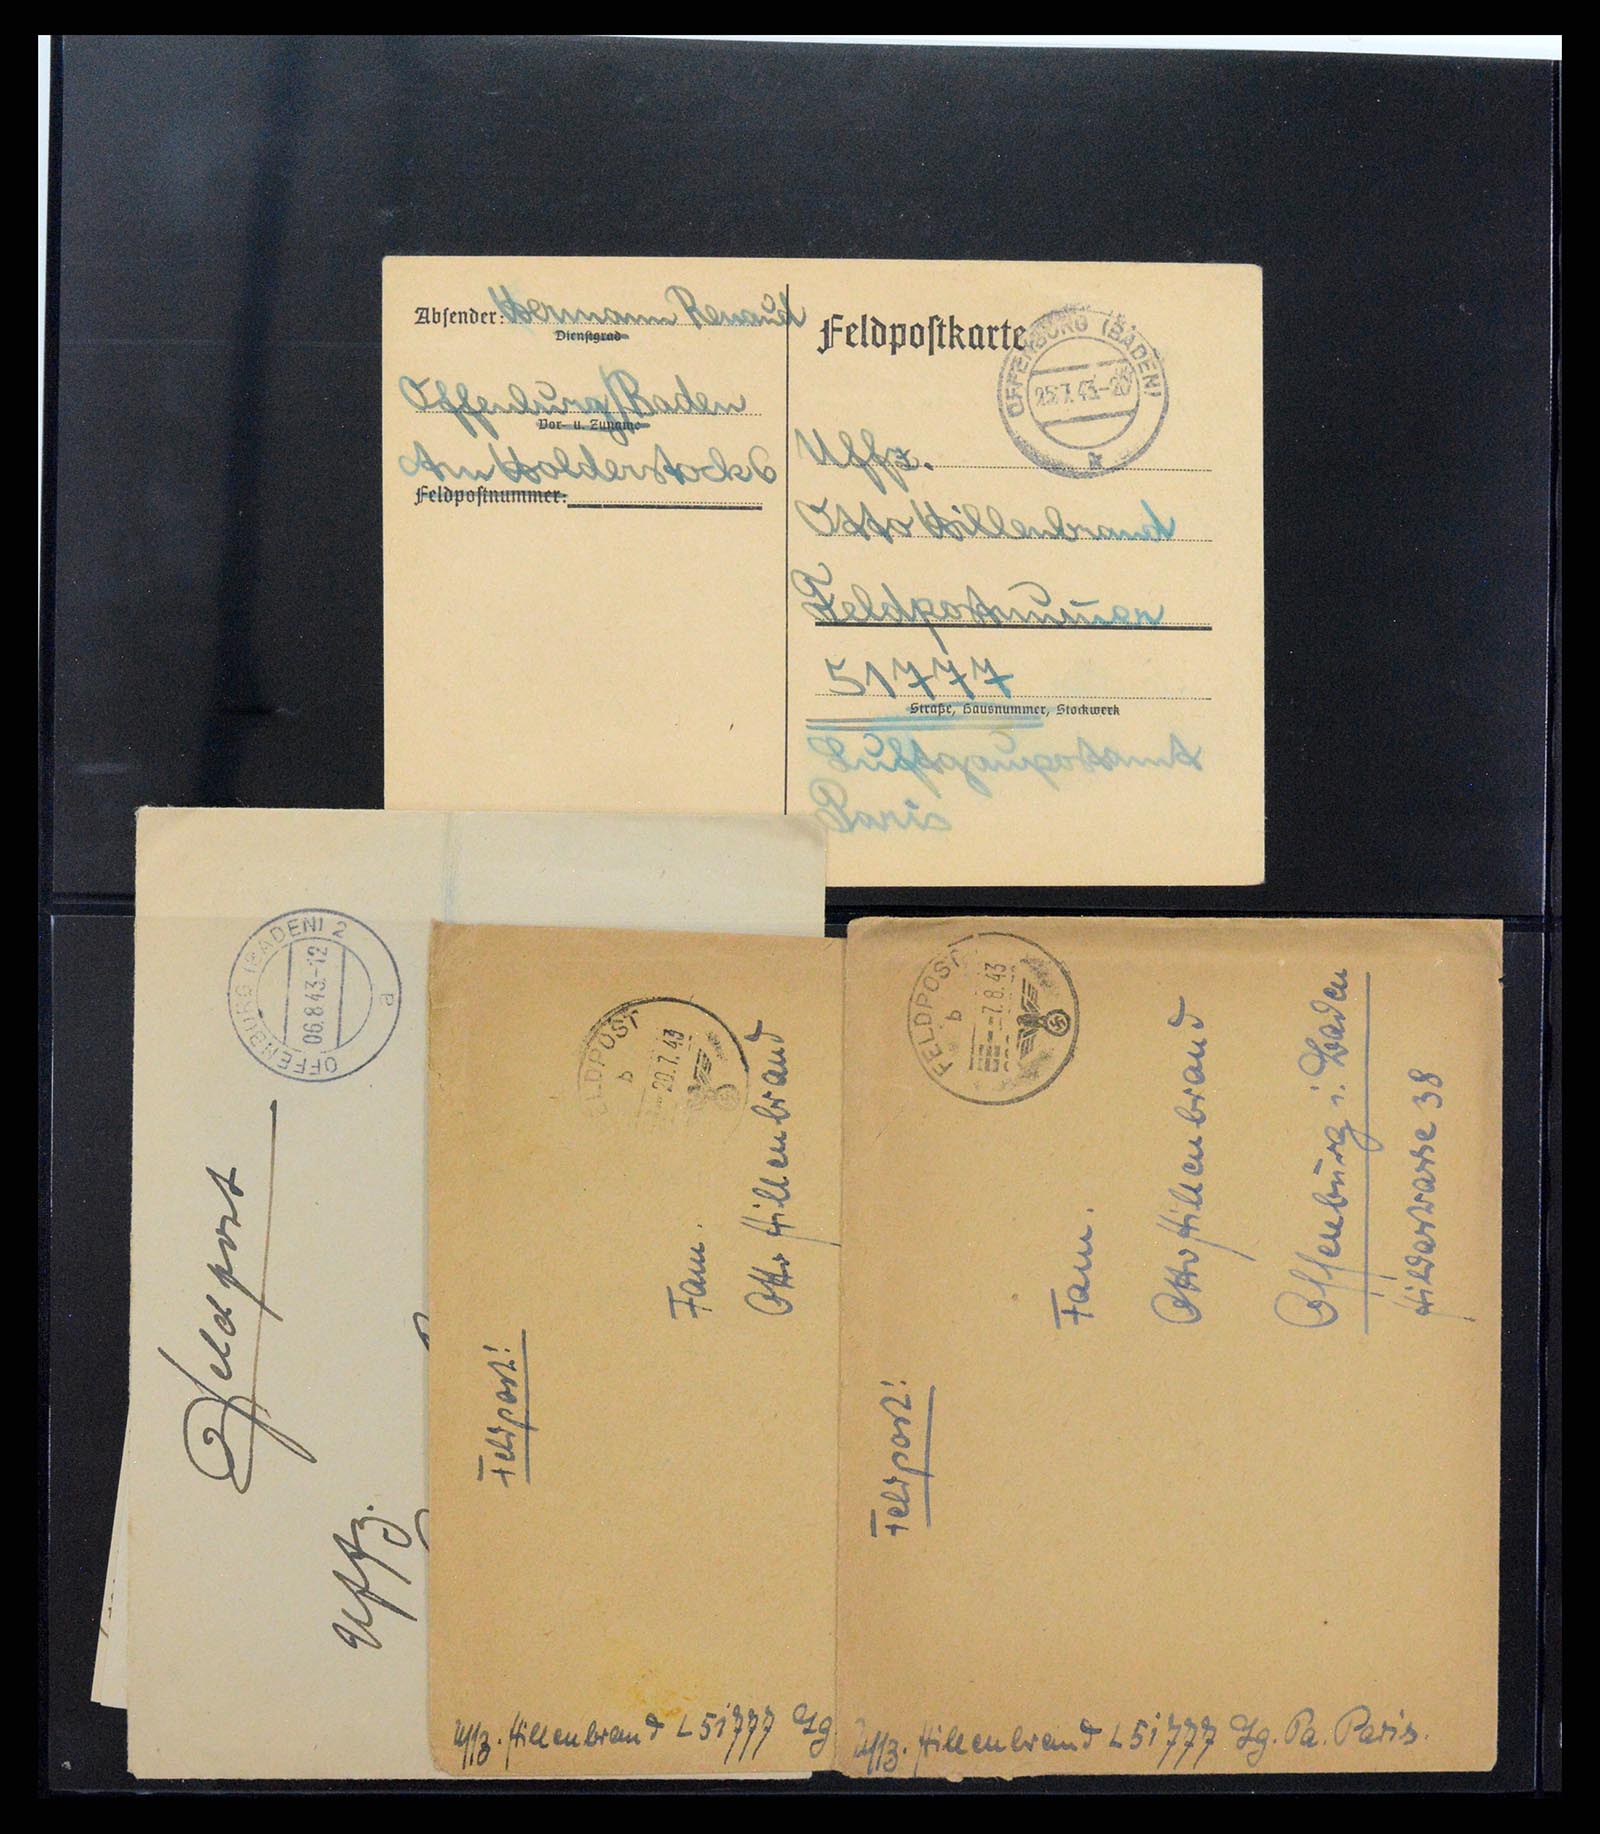 Absender: Hermann Renaud
Dienstgrad
Offenburg/Baden
Vor- u. Zuname
Am Holderstock 6
Feldpostnummer:
Feldpostkarte
OFFENBURG (BADEN)
25.7.43.-20
Uffz.
Otto Hillenbrand
Feldpostnummer
51777
Straße, Hausnummer, Stockwerk
Luftgaupostamt
Paris
OFFENBURG (BADEN) 2
06.8.43.-12
a
Feldpost
Uffz.
FELDPOST
b
20.7.43
Feldpost!
Fam.
Otto Hillenbrand
Uffz. Hillenbrand L 51777 Lg.
FELDPOST
b
-7.8.43
Feldpost!
Fam.
Otto Hillenbrand
Offenburg i. Baden
Hildastrasse 38
Uffz. Hillenbrand L 51777 Lg. Pa. Paris.